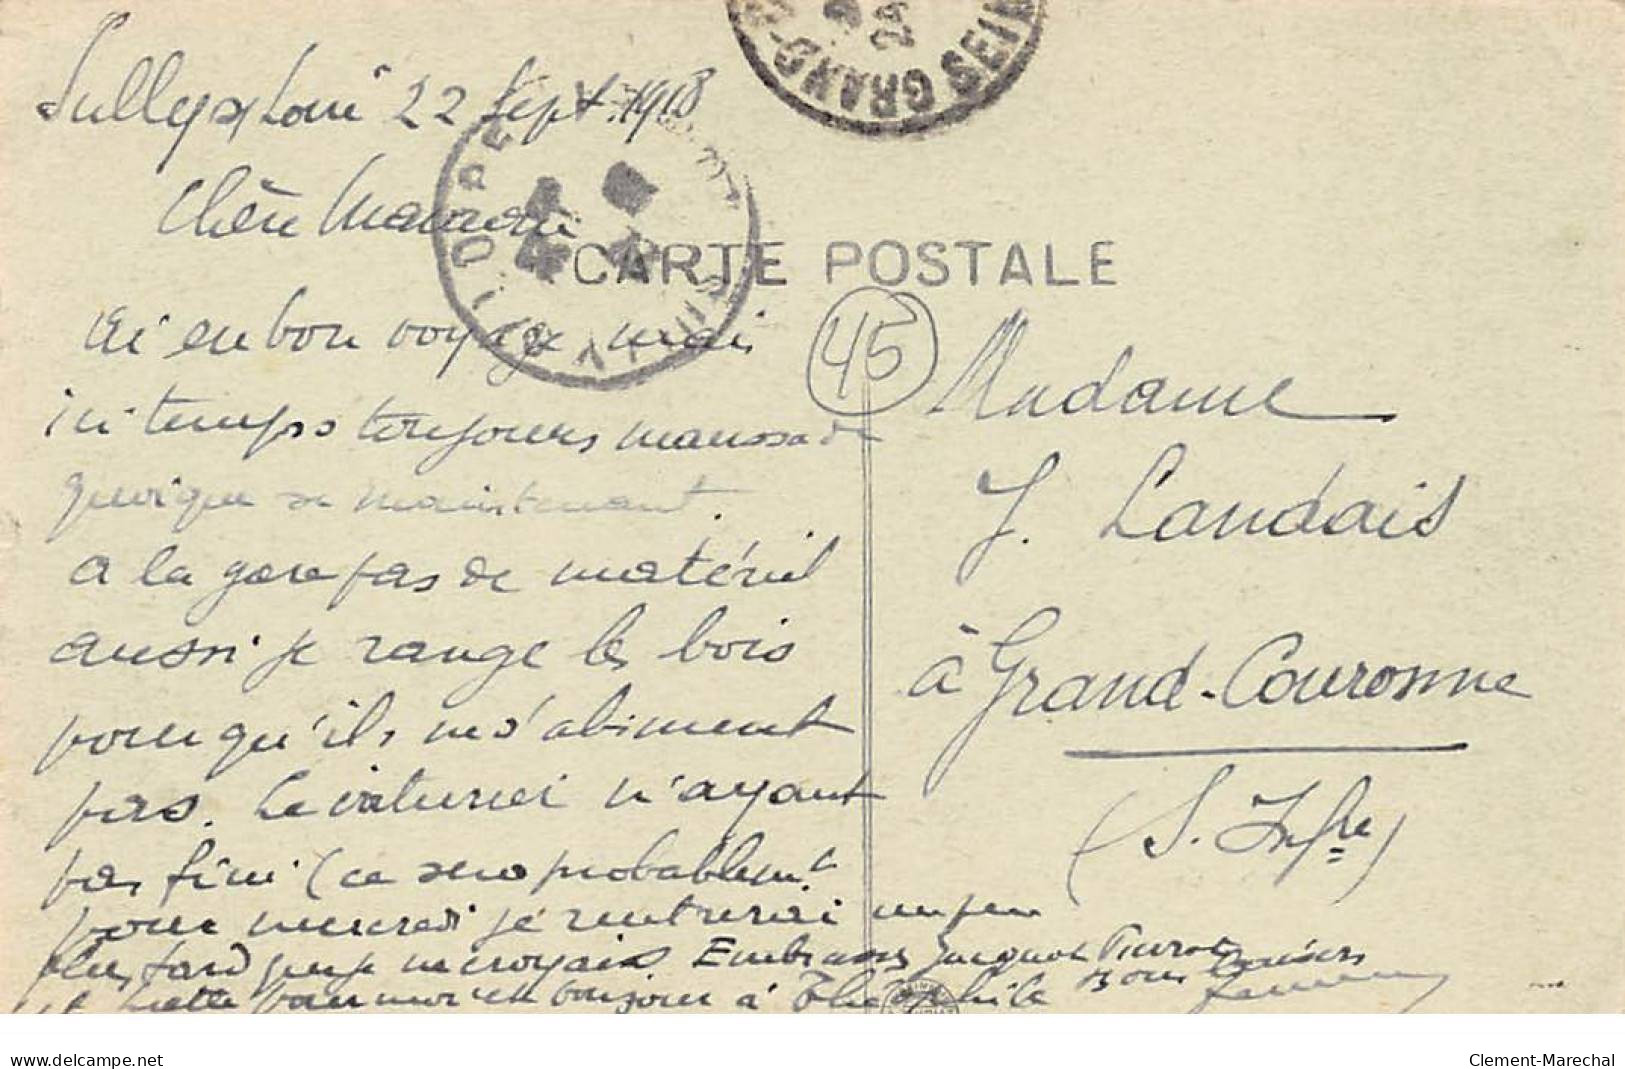 Sully s/ Loire 22 Sept. 1918
GRAND- SEIN
24
Chère Maman
CARTE POSTALE
en bon voyage mais
ici temps toujours maussade
quoique maintenant.
a la gare pas de matériel
aussi je range les bois
pour qu'ils ne s'abiment
pas. Le voiturier n'ayant
pas fini (ce sera probablemt
pour mercredi je rentrerai un peu
plus tard que je ne croyais. Embrasses Jacquot Pierrot
et pour moi un bonjour à Théophile Bons baisers
45
Madame
J. Landais
à Grand-Couronne
(S. Infre)
www.delcampe.net
Clement-Marechal